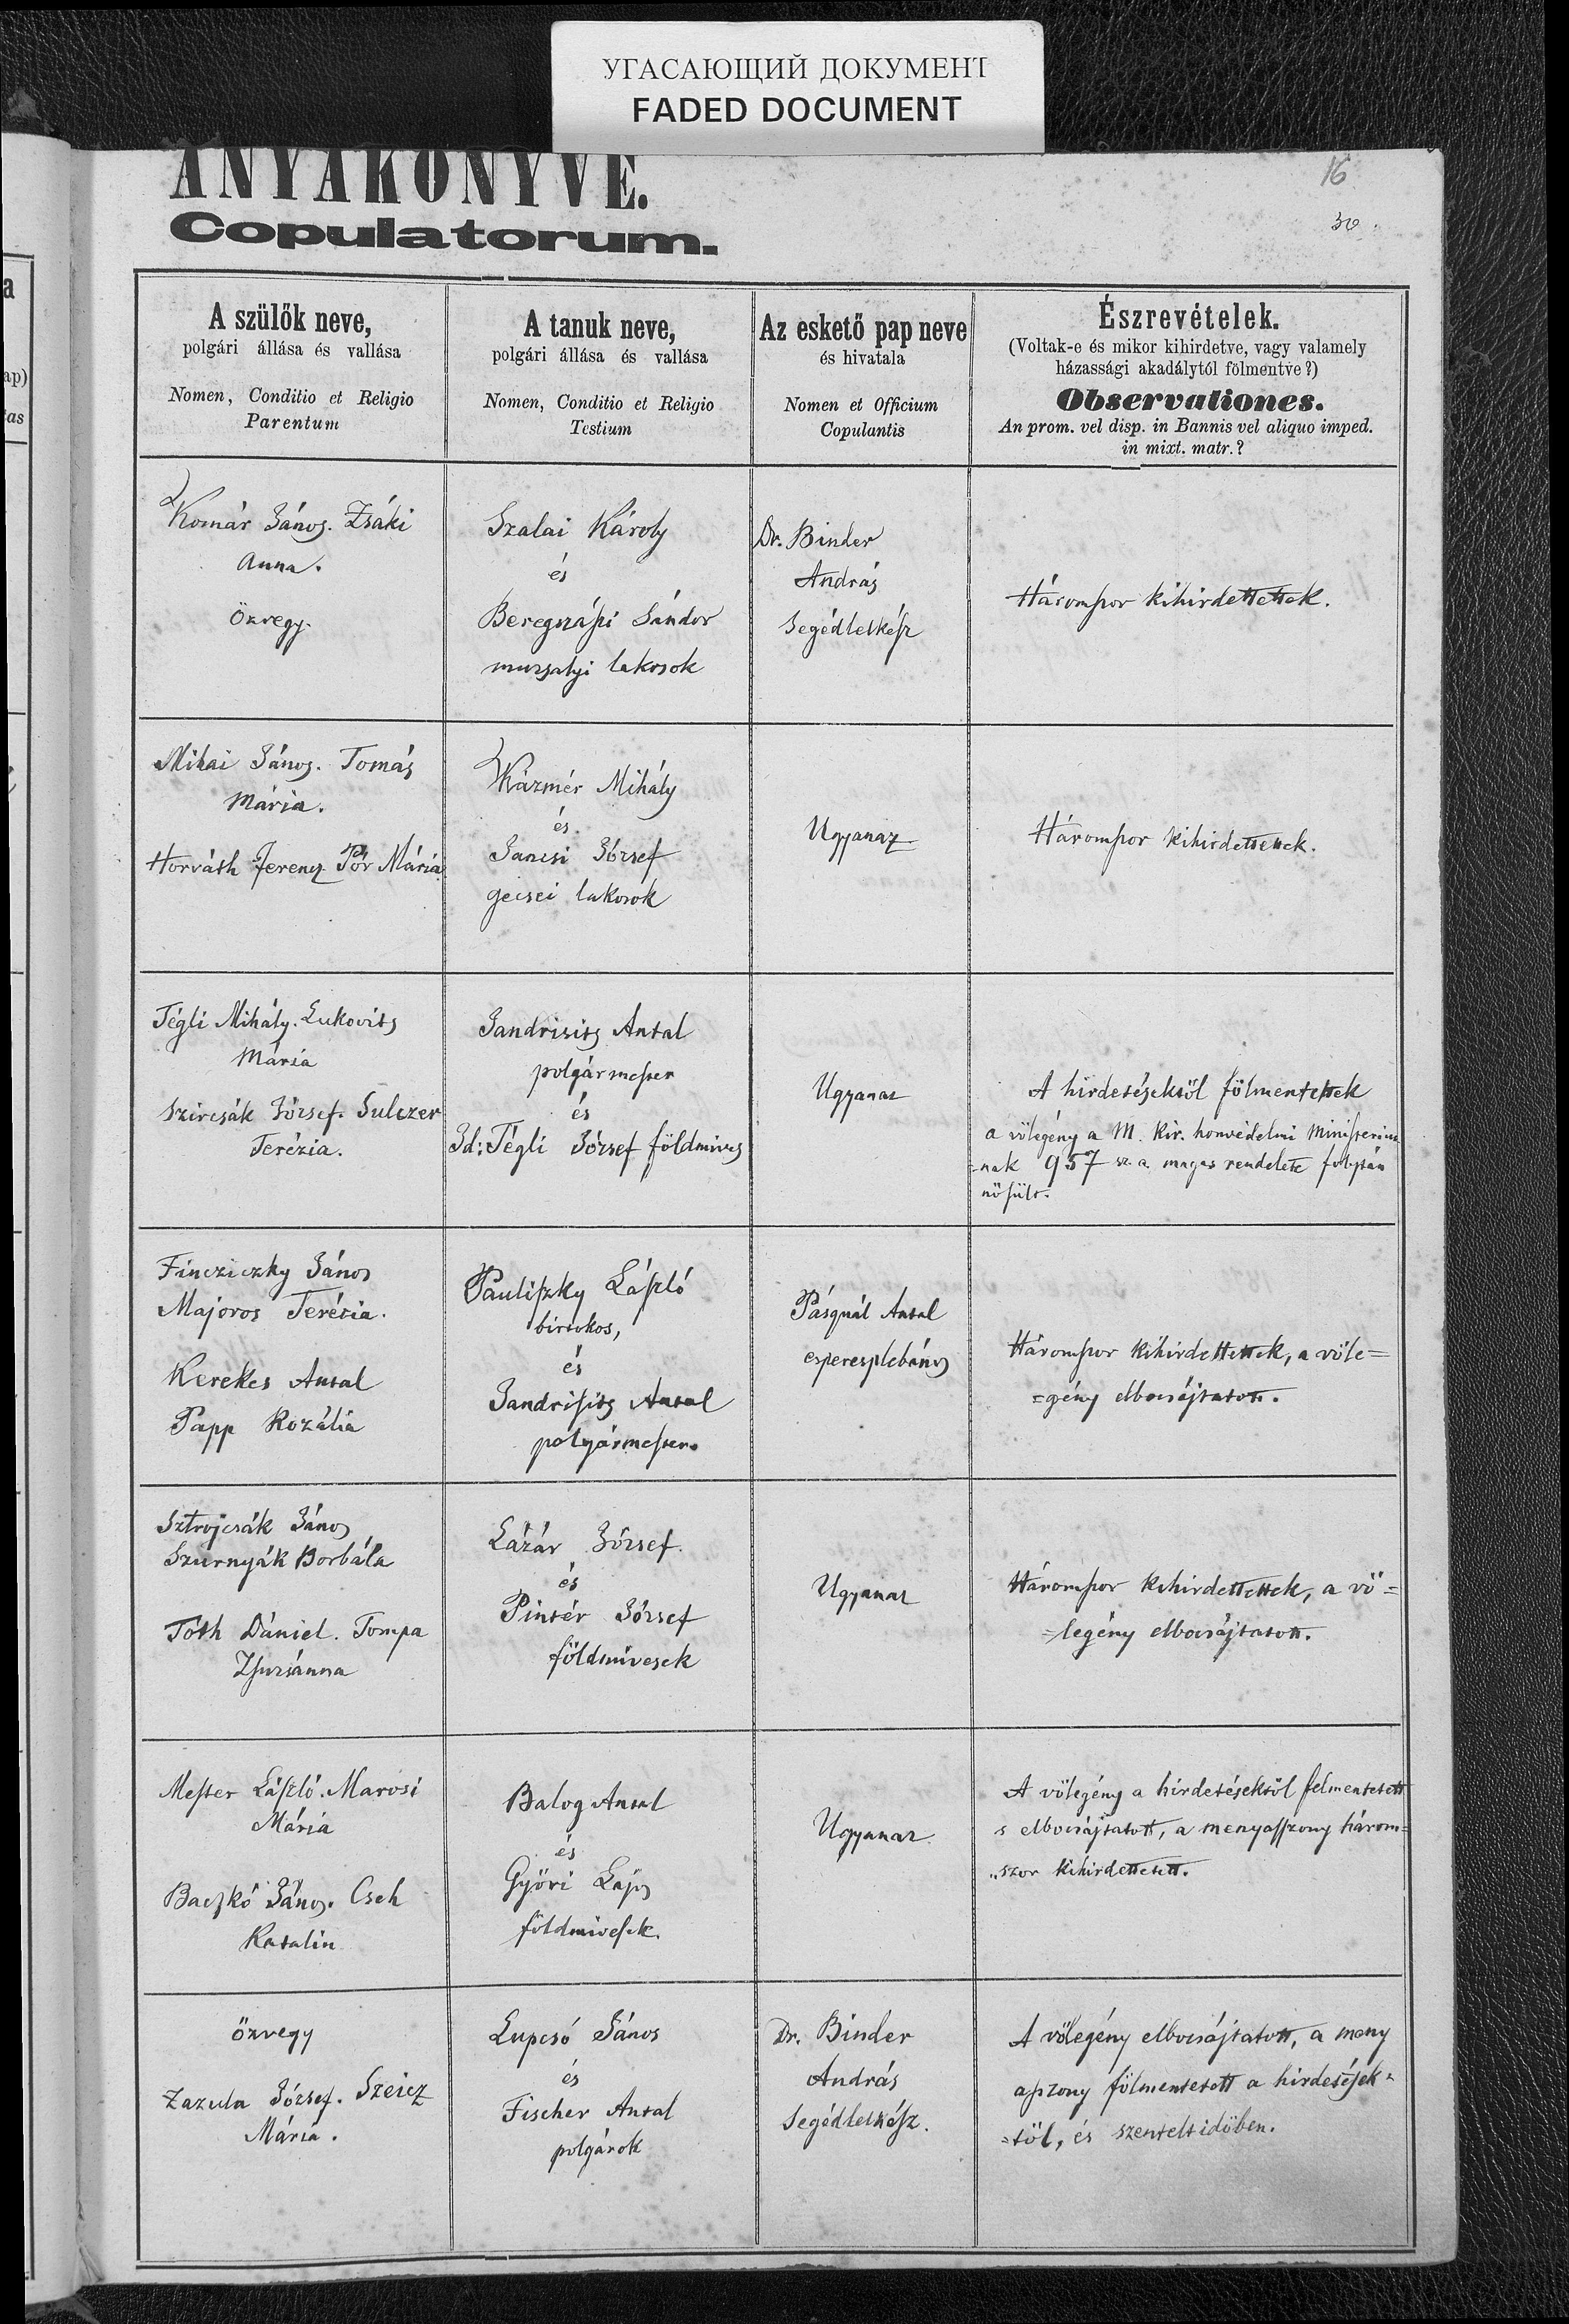 УГАСАЮЩИЙ ДОКУМЕНТ
FADED DOCUMENT
ANYAKÖNYVE.
Copulatorum.
16
30.
a
ap)
tas
A szülők neve,
polgári állása és vallása
Nomen, Conditio et Religio
Parentum
A tanuk neve,
polgári állása és vallása
Nomen, Conditio et Religio
Testium
Az eskető pap neve
és hivatala
Nomen et Officium
Copulantis
Észrevételek.
(Voltak-e és mikor kihirdetve, vagy valamely
házassági akadálytól fölmentve?)
Observationes.
An prom. vel disp. in Bannis vel aliquo imped.
in mixt. matr.?
Komár János. Zsáki
Anna.
Özvegy.
Szalai Károly
és
Beregszászi Sándor
muzsalyi lakosok
Dr. Binder
András
Segédlelkész
Háromszor kihirdettettek.
Mihai János. Tomás
Mária.
Horváth Ferencz Pór Mária
Kázmér Mihály
és
Jancsi József
gecsei lakosok
Ugyanaz
Háromszor kihirdettettek.
Tégli Mihály. Lukovits
Mária
Szircsák József. Sulczer
Terézia.
Jandrisits Antal
polgármester
és
Id: Tégli József földmives
Ugyanaz
A hirdetésektöl fölmentettek
a völegény a M. kir. honvédelmi Ministerium
=nak 957 sz. a. magas rendelete folytán
nösült.
Fincziczky János
Majoros Terézia.
Kerekes Antal
Papp Rozália
Pauliszky László
birtokos,
és
Jandrisits Antal
polgármester.
Pásquál Antal
esperesplebános
Háromszor kihirdettettek, a völe=
=gény elbocsájtatott.
Sztrojcsák János
Szurnyák Borbála
Tóth Dániel. Tompa
Zsuzsánna
Lázár József.
és
Pintér József
földmüvesek
Ugyanaz
Háromszor kihirdettettek, a vö=
=legény elbocsájtatott.
Mester László. Marosi
Mária
Baczkó János. Cseh
Katalin
Balog Antal
és
Györi Lajos
földmivesek.
Ugyanaz
A völegény a hirdetésektöl felmentetett
s elbocsájtatott, a menyasszony három=
„szor kihirdettetett.
özvegy
Zazula József. Szeicz
Mária.
Lupcsó János
és
Fischer Antal
polgárok
Dr. Binder
András
Segédlelkész.
A völegény elbocsájtatott, a meny
aszony fölmentetett a hirdetések=
=töl, és szentelt idöben.